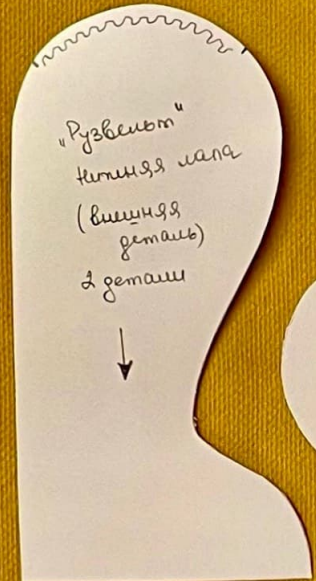 „Рузвельт"
нижняя лапа
(внешняя
деталь)
2 детали